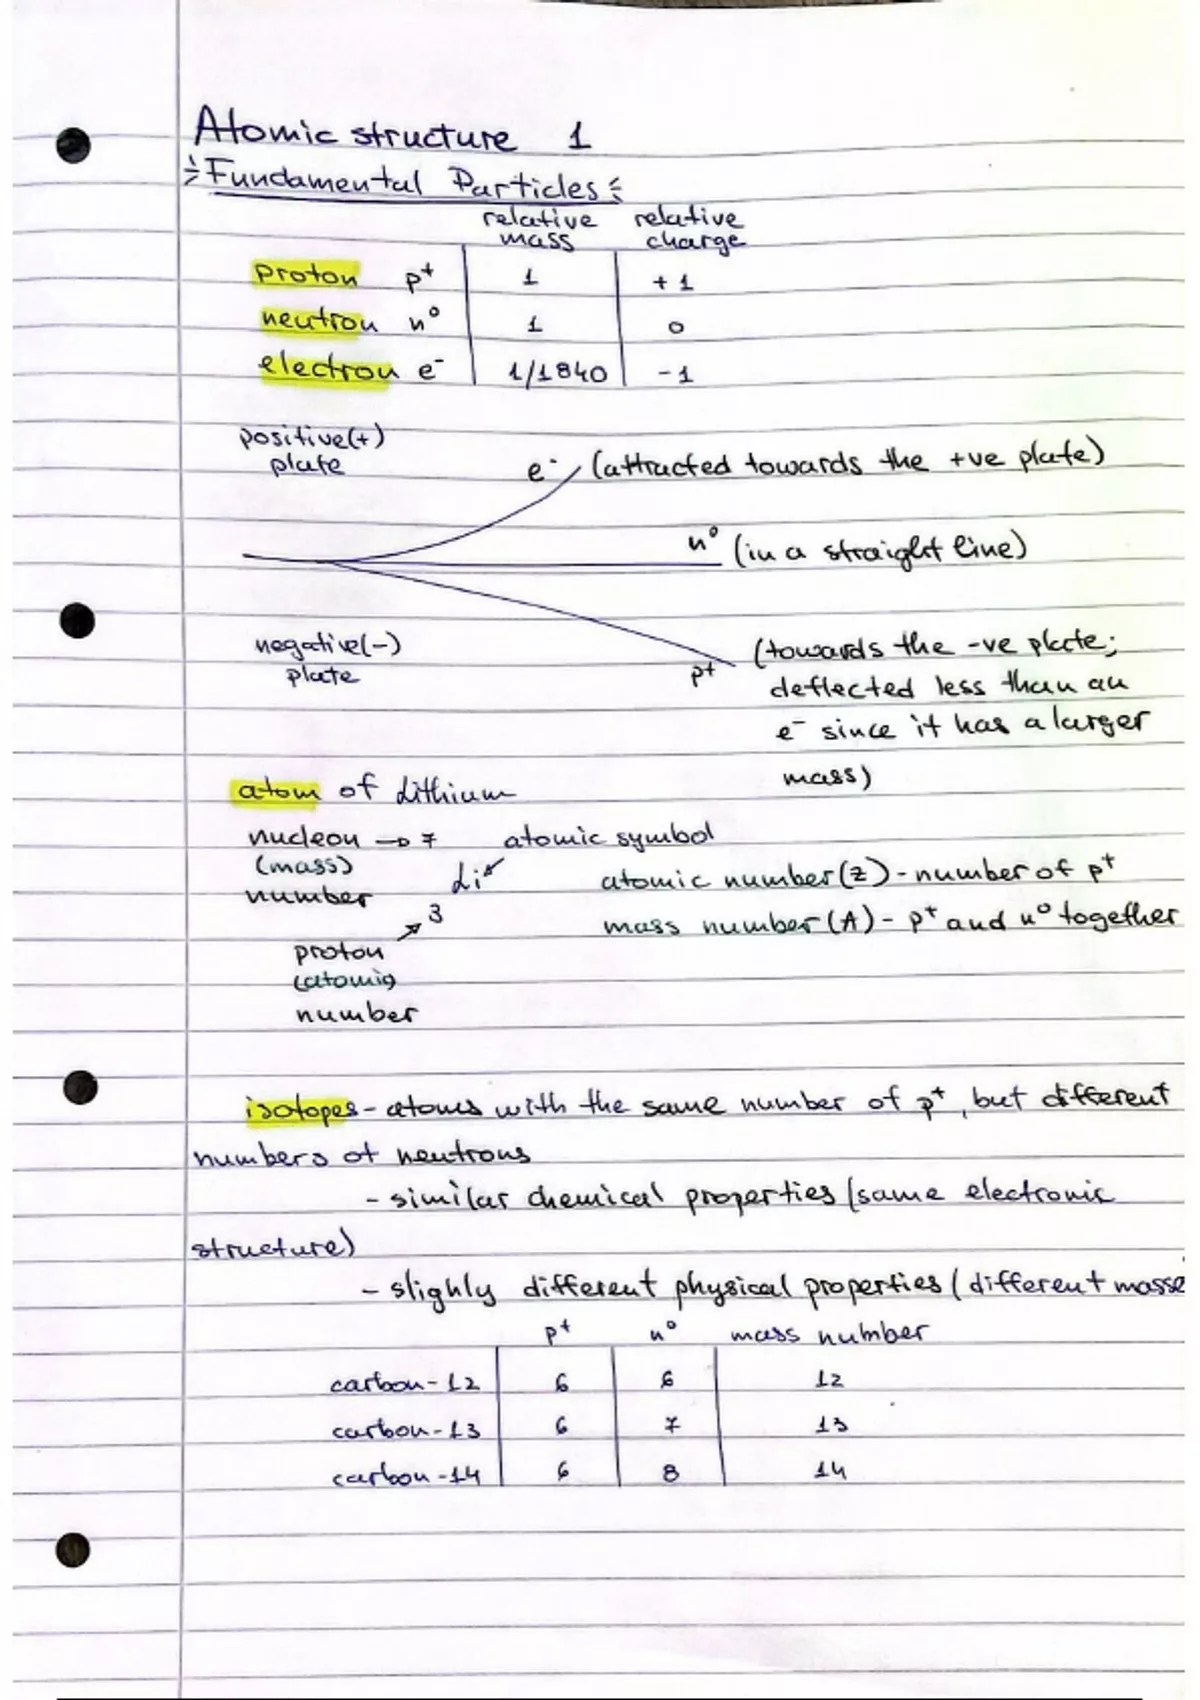 Atomic structure 1
Fundamental Particles
relative relative
mass charge
proton p⁺ 1 +1
neutron n⁰ 1 0
electron e⁻ 1/1840 -1
positive(+)
plate
e⁻ (attracted towards the +ve plate)
n⁰ (in a straight line)
negative(-)
plate
p⁺ (towards the -ve plate;
deflected less than an
e⁻ since it has a larger
mass)
atom of Lithium
nucleon → 7 atomic symbol
(mass)
number
Li
atomic number(z) - number of p⁺
3
mass number (A) - p⁺ and n⁰ together
proton
(atomic)
number
isotopes - atoms with the same number of p⁺, but different
numbers of neutrons
- similar chemical properties (same electronic
structure)
- slighly different physical properties (different masse
p⁺ n⁰ mass number
carbon-12 6 6 12
carbon-13 6 7 13
carbon-14 6 8 14